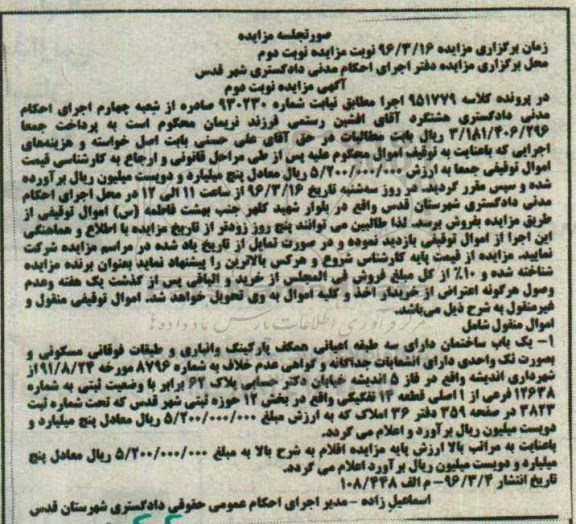 صورتجلسه مزایده
زمان برگزاری مزایده ۹۶/۳/۱۶ نوبت مزایده نوبت دوم
محل برگزاری مزایده دفتر اجرای احکام مدنی دادگستری شهر قدس
آگهی مزایده نوبت دوم
در پرونده کلاسه ۹۵۱۷۷۹ اجرا مطابق نیابت شماره ۹۳۰۲۳۰ صادره از شعبه چهارم اجرای احکام
مدنی دادگستری هشتگرد آقای افشین رستمی فرزند فریمان محکوم است به پرداخت جمعا
۳/۱۸۱/۴۰۶/۲۹۶ ریال بابت مطالبات در حق آقای علی حسنی بابت اصل خواسته و هزینه‌های
اجرایی که باعنایت به توقیف اموال محکوم علیه پس از طی مراحل قانونی و ارجاع به کارشناسی قیمت
اموال توقیفی جمعا به ارزش ۵/۲۰۰/۰۰۰/۰۰۰ ریال معادل پنج میلیارد و دویست میلیون ریال برآورده
شده و سپس مقرر گردید. در روز سه‌شنبه تاریخ ۹۶/۳/۱۶ از ساعت ۱۱ الی ۱۲ در محل اجرای احکام
مدنی دادگستری شهرستان قدس واقع در بلوار شهید کلهر جنب بهشت فاطمه (س) اموال توقیفی از
طریق مزایده بفروش برسد. لذا طالبین می توانند پنج روز زودتر از تاریخ مزایده با اطلاع و هماهنگی
این اجرا از اموال توقیفی بازدید نموده و در صورت تمایل از تاریخ یاد شده در مراسم مزایده شرکت
نمایید. مزایده از قیمت پایه کارشناس شروع و هرکس بالاترین را پیشنهاد نماید بعنوان برنده مزایده
شناخته شده و ۱۰٪ از کل مبلغ فروش فی المجلس از خریدار و الباقی پس از گذشت یک هفته وعدم
وصول هرگونه اعتراض از خریدار اخذ و کلیه اموال به وی تحویل خواهد شد. اموال توقیفی منقول و
غیرمنقول به شرح ذیل می‌باشد.
اموال منقول شامل
۱- یک باب ساختمان دارای سه طبقه اعیانی همکف پارکینگ وانباری و طبقات فوقانی مسکونی و
بصورت تک واحدی دارای انشعابات جداگانه و گواهی عدم خلاف به شماره ۸۷۹۶ مورخه ۹۱/۸/۲۴ از
شهرداری اندیشه واقع در فاز ۵ اندیشه خیابان دکتر حسابی پلاک ۶۲ برابر با وضعیت ثبتی به شماره
۱۲۶۳۸ فرعی از ۱ اصلی قطعه ۱۴ تفکیکی واقع در بخش ۱۲ حوزه ثبتی شهر قدس که تحت شماره ثبت
۳۸۲۳ در صفحه ۳۵۹ دفتر ۳۶ املاک که به ارزش مبلغ ۵/۲۰۰/۰۰۰/۰۰۰ ریال معادل پنج میلیارد و
دویست میلیون ریال برآورد و اعلام می گردد.
باعنایت به مراتب بالا ارزش پایه مزایده اقلام به شرح بالا به مبلغ ۵/۲۰۰/۰۰۰/۰۰۰ ریال معادل پنج
میلیارد و دویست میلیون ریال برآورد اعلام می گردد.
تاریخ انتشار ۹۶/۳/۴- م الف ۱۰۸/۴۴۸
اسماعیل زاده - مدیر اجرای احکام عمومی حقوقی دادگستری شهرستان قدس